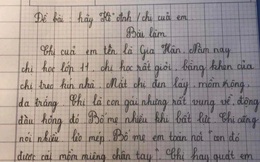 Đề bài hãy tả anh / chị của em
Bài làm
Chị cuả em tên là Gia Hân. Năm nay
chị học lớp 11. chị học rất giỏi, bằng khen của
chị treo kín nhà. Mặt chị đen lay, mồm rộng,
da trắng. Chị là con gái nhưng rất vung về, động
đâu hỏng đó. Bố mẹ nhiều khi bất lực. Chị cũng
nói nhiều, lẻo mép. Bố mẹ em toàn nói "con đó
được cái mồm miệng chân tay". Chị hay quát em